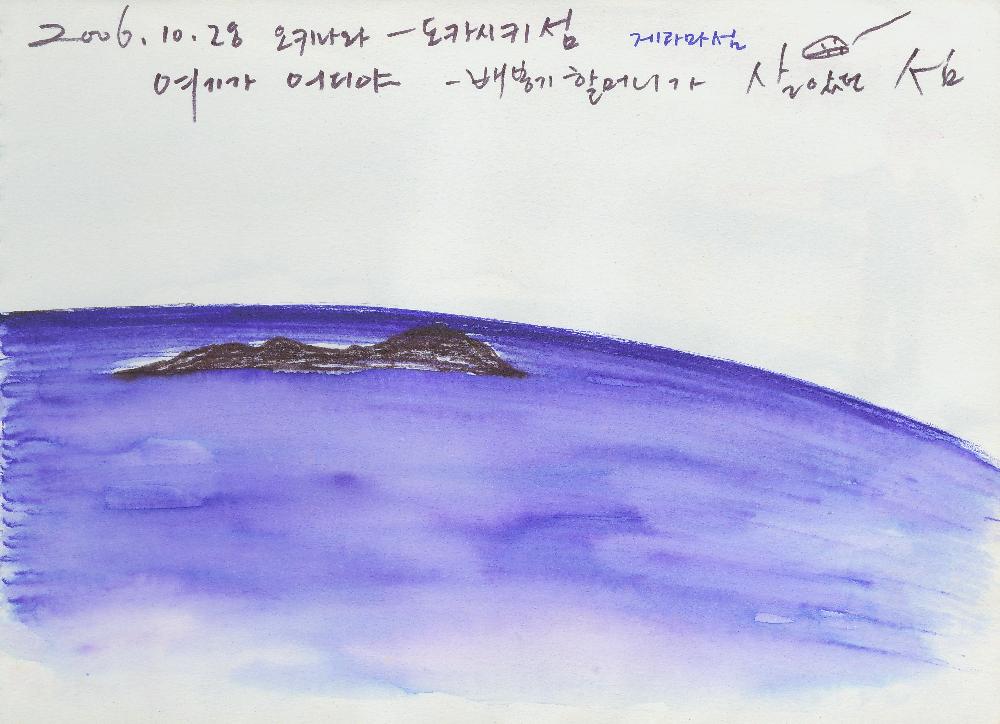 2006.10.28 오키나와 - 도카시키섬 게라마섬
여기가 어디야 - 배봉기 할머니가 살았던 섬